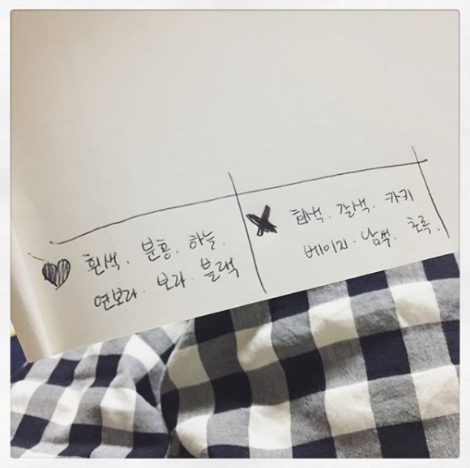 흰색. 분홍. 하늘.
연보라. 보라. 블랙
회색. 갈색. 카키
베이지. 남색. 초록.